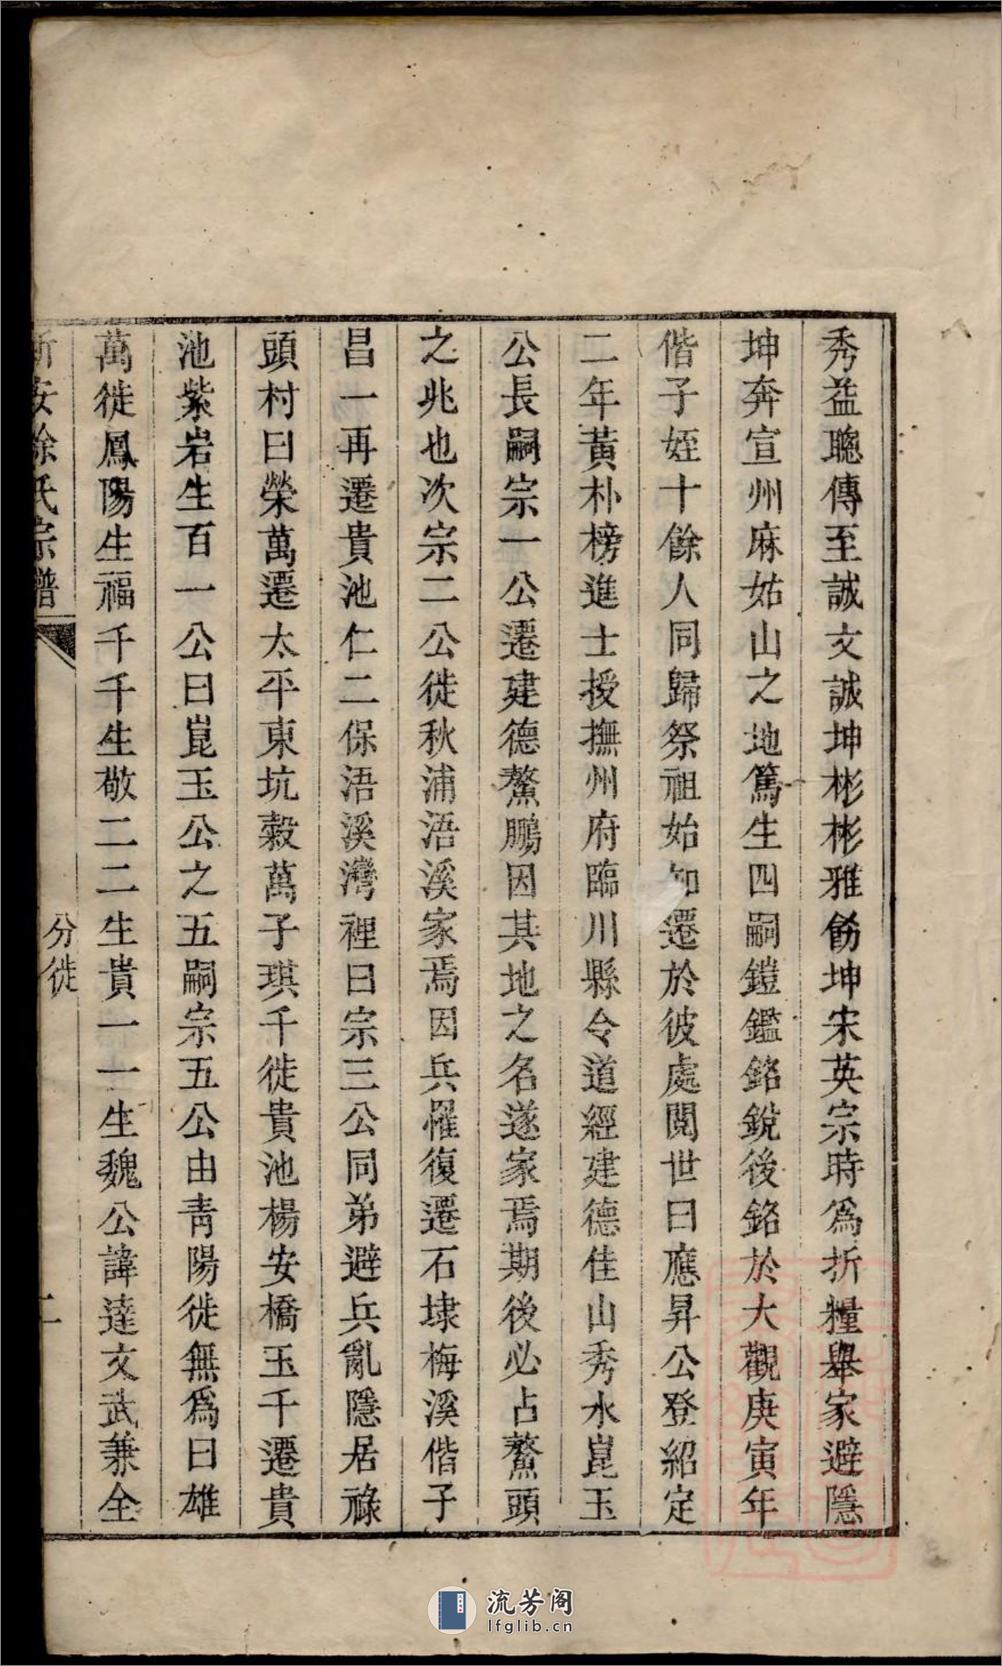 秀益聰傳至誠文誠坤彬彬雅飭坤宋英宗時爲折糧舉家避隱
坤奔宣州麻姑山之地篤生四嗣鎧鑑銘銳後銘於大觀庚寅年
偕子姪十餘人同歸祭祖始知遷於彼處閱世曰應昇公登紹定
二年黃朴榜進士授撫州府臨川縣令道經建德佳山秀水崑玉
公長嗣宗一公遷建德鰲鵬因其地之名遂家焉期後必占鰲頭
之兆也次宗二公徙秋浦浯溪家焉因兵罹復遷石埭梅溪偕子
昌一再遷貴池仁二保浯溪灣裡曰宗三公同弟避兵亂隱居祿
頭村曰榮萬遷太平東坑榖萬子琪千徙貴池楊安橋玉千遷貴
池紫岩生百一公曰崑玉公之五嗣宗五公由靑陽徙無爲曰雄
萬徙鳳陽生福千千生敬二二生貴一一生魏公諱達文武兼全
新安徐氏宗譜
分徙
二
流芳阁
lfglib.cn